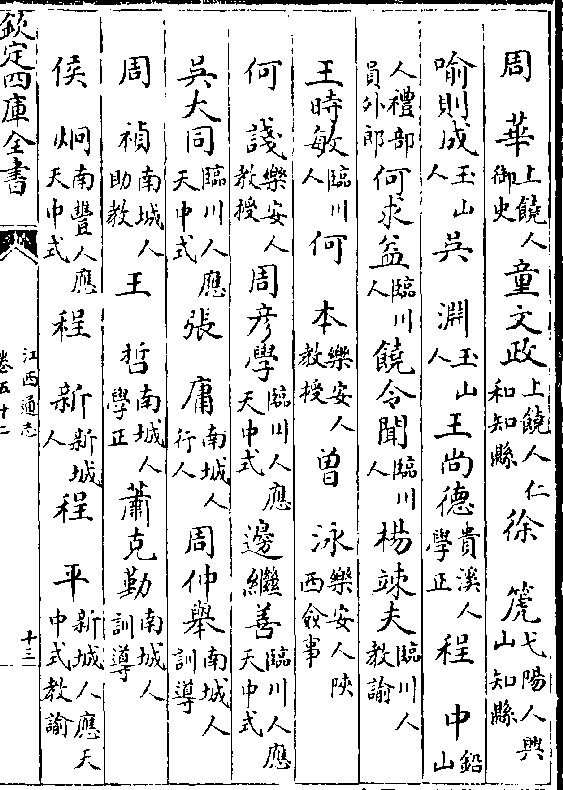 周華上饒人御史童文政上饒人仁和知縣徐篪弋陽人興山知縣
喻則成玉山人吳淵玉山人王尚德貴溪人學正程中鉛山
人禮部員外郎何求益臨川人饒令聞臨川人楊竦夫臨川人教諭
王時敏臨川人何本樂安人教授曾泳樂安人陜西僉事
何淺樂安人教授周彥學臨川人應天中式邊繼善臨川人應天中式
吳大同臨川人應天中式張庸南城人行人周仲舉南城人訓導
周禎南城人助教王哲南城人學正蕭克勤南城人訓導
侯炯南豐人應天中式程新新城人程平新城人應天中式教諭
欽定四庫全書
江西通志
卷五十二
十三